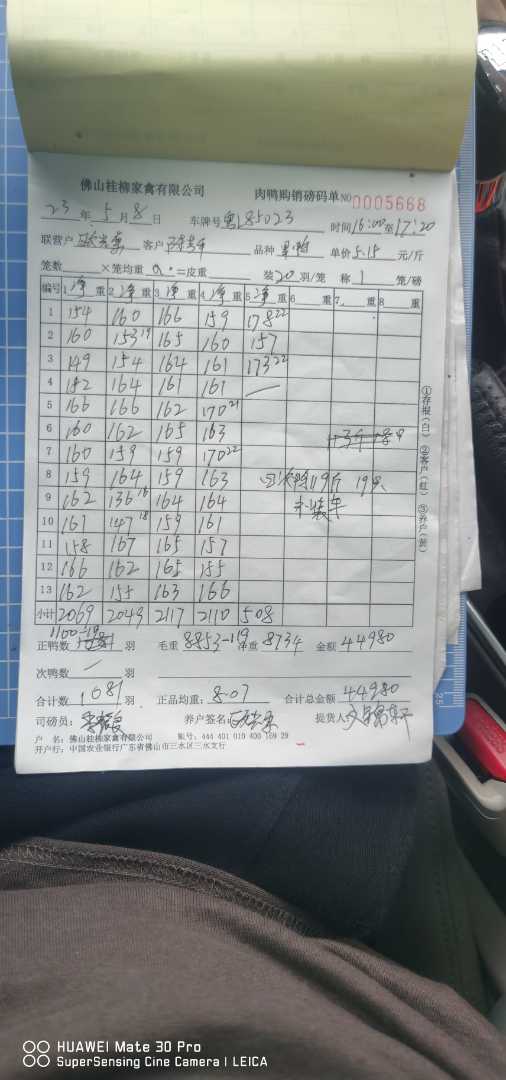 佛山桂柳家禽有限公司 肉鸭购销磅码单 NO 0005668
23年5月8日 车牌号 粤L85023 时间16:00至17:20
联营户 客户 品种 单价5.15元/斤
笼数 ×笼均重 =皮重 装20羽/笼 称1笼/磅
编号 1净重 2净重 3净重 4净重 5净重 6 重 7 重 8 重
1 154 160 166 159 178 22
2 160 153 19 165 160 157
3 149 154 164 161 173 22
4 152 164 161 161 —
5 166 166 162 170 21
6 160 162 165 163
7 160 159 159 170 22
8 159 164 159 163 次鸭119斤 19只
9 162 136 16 164 164 未装车
10 161 147 18 159 161
11 158 167 165 157
12 166 162 165 155
13 162 155 163 166
小计 2069 2049 2117 2110 508
1100-19
正鸭数 1081 羽 毛重 8853-119 净重 8734 金额 44980
次鸭数 — 羽
合计数 1081 羽 正品均重: 8.07 合计总金额 44980
司磅员: 养户签名: 提货人:
户 名: 佛山桂柳家禽有限公司 账号: 444 401 010 400 169 29
开户行: 中国农业银行广东省佛山市三水区三水支行
①存根(白) ②客户(红) ③养户(黄)
HUAWEI Mate 30 Pro
SuperSensing Cine Camera | LEICA